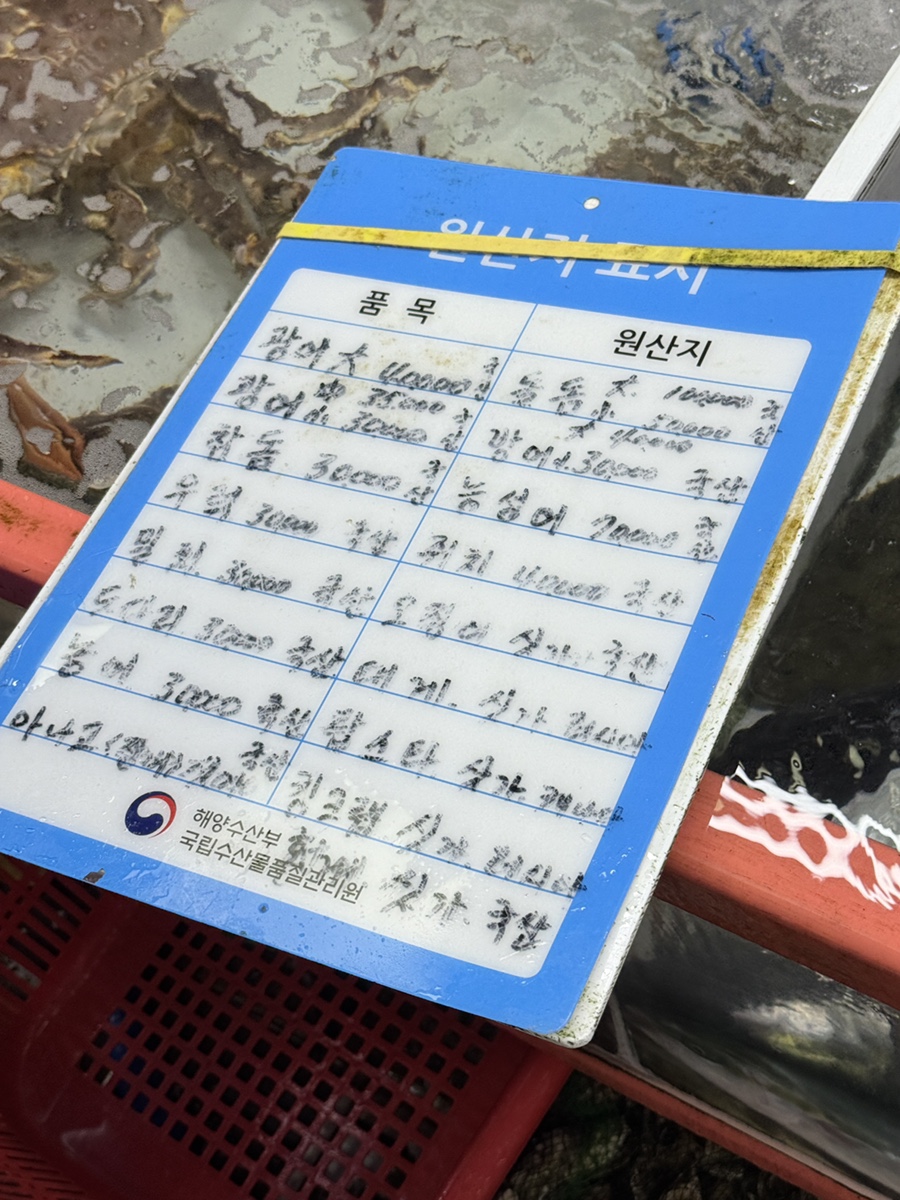 원산지 표지
품 목
원산지
광어 大 40000 국산
中 35000
광어 小 30000 국산
참돔 30000 국산
우럭 30000 국산
밀치 30000 국산
30000 국산
농어 30000 국산
아나고
돌돔 大 100000 국산
小 50000
大 40000
방어 小 30000 국산
능성어 70000 국산
쥐치 40000 국산
오징어 싯가 국산
대게 싯가 러시아
랍스타 싯가 캐나다
킹크랩 싯가 러시아
싯가 국산
해양수산부
국립수산물품질관리원